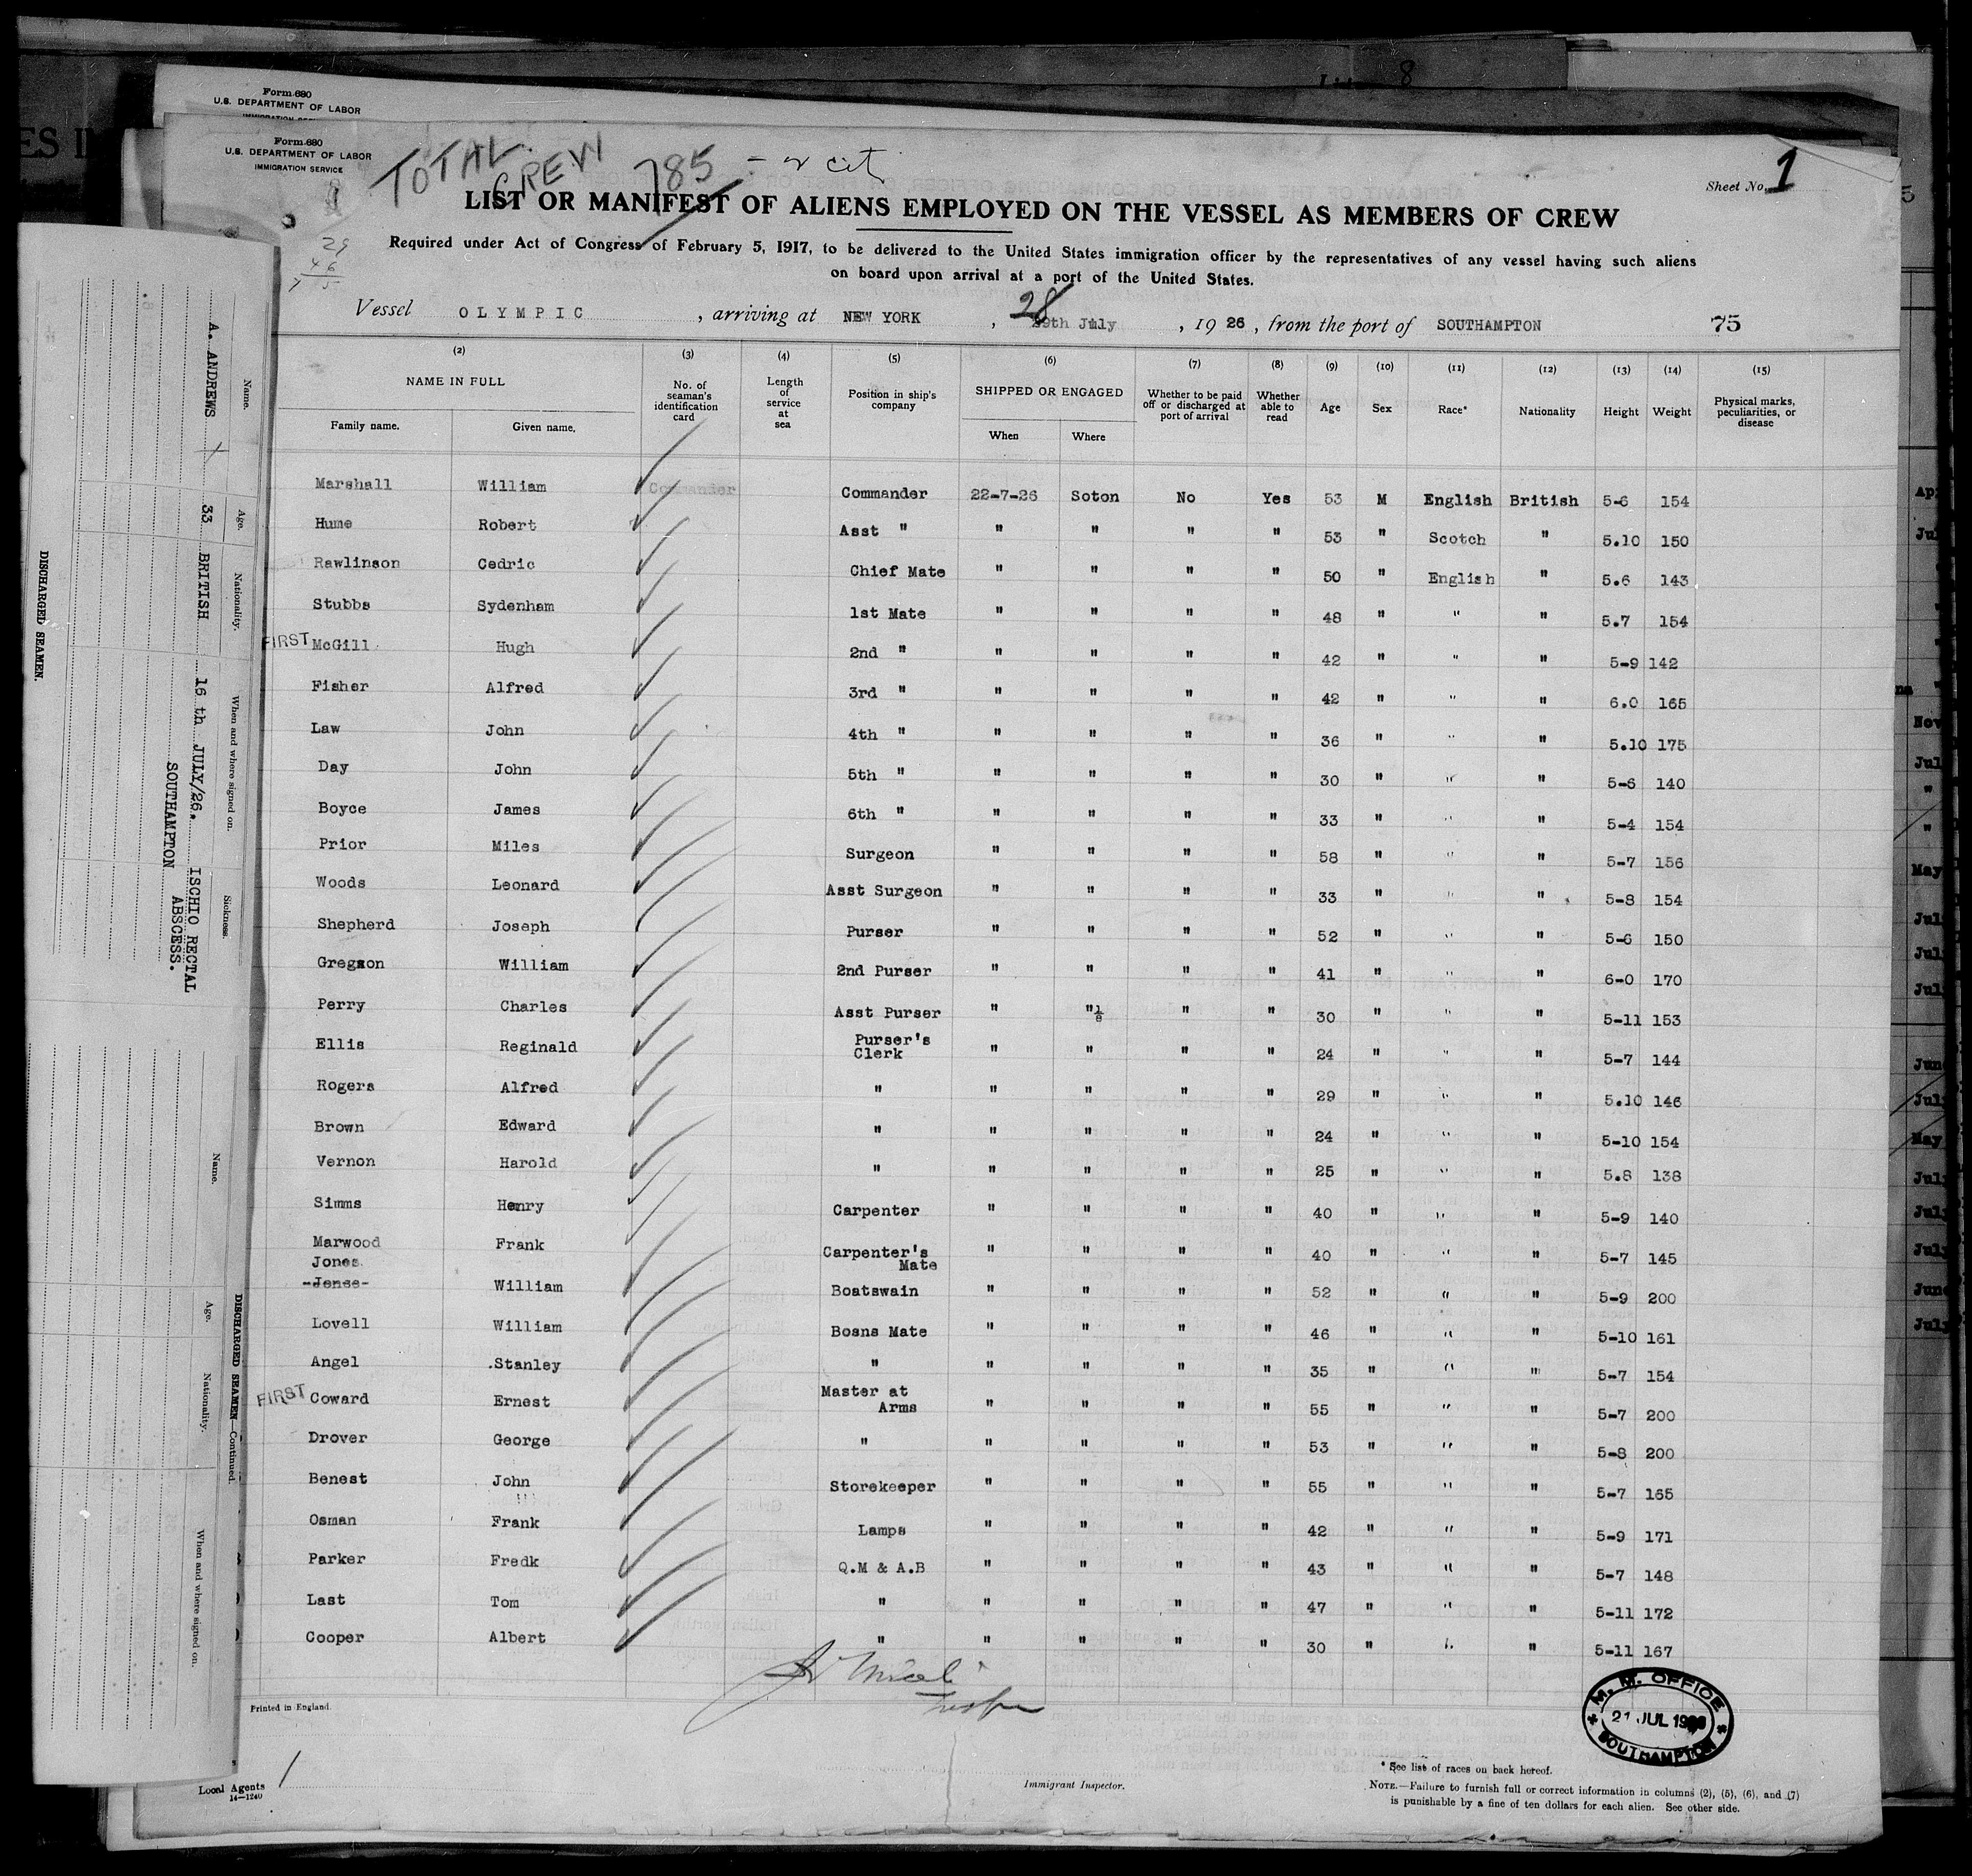 Form 680
U.S. DEPARTMENT OF LABOR
Form 680
U.S. DEPARTMENT OF LABOR
IMMIGRATION SERVICE
TOTAL CREW 785
Sheet No. 1
LIST OR MANIFEST OF ALIENS EMPLOYED ON THE VESSEL AS MEMBERS OF CREW
Required under Act of Congress of February 5, 1917, to be delivered to the United States immigration officer by the representatives of any vessel having such aliens
on board upon arrival at a port of the United States.
Vessel OLYMPIC, arriving at NEW YORK, 28 29th July, 1926, from the port of SOUTHAMPTON 75
(2) (3) (4) (5) (6) (7) (8) (9) (10) (11) (12) (13) (14) (15)
NAME IN FULL No. of seaman's identification card Length of service at sea Position in ship's company SHIPPED OR ENGAGED Whether to be paid off or discharged at port of arrival Whether able to read Age Sex Race* Nationality Height Weight Physical marks, peculiarities, or disease
Family name. Given name. When Where
Marshall William Commander Commander 22-7-26 Soton No Yes 53 M English British 5-6 154
Hume Robert Asst " " " " " 53 " Scotch " 5.10 150
Rawlinson Cedric Chief Mate " " " " 50 " English " 5.6 143
Stubbs Sydenham 1st Mate " " " " 48 " " " 5.7 154
FIRST McGill Hugh 2nd " " " " " 42 " " " 5-9 142
Fisher Alfred 3rd " " " " " 42 " " " 6.0 165
Law John 4th " " " " " 36 " " " 5.10 175
Day John 5th " " " " " 30 " " " 5-6 140
Boyce James 6th " " " " " 33 " " " 5-4 154
Prior Miles Surgeon " " " " 58 " " " 5-7 156
Woods Leonard Asst Surgeon " " " " 33 " " " 5-8 154
Shepherd Joseph Purser " " " " 52 " " " 5-6 150
Gregson William 2nd Purser " " " " 41 " " " 6-0 170
Perry Charles Asst Purser " " 1/8 " " 30 " " " 5-11 153
Ellis Reginald Purser's Clerk " " " " 24 " " " 5-7 144
Rogers Alfred " " " " " 29 " " " 5.10 146
Brown Edward " " " " " 24 " " " 5-10 154
Vernon Harold " " " " " 25 " " " 5.8 138
Simms Henry Carpenter " " " " 40 " " " 5-9 140
Marwood Frank Carpenter's Mate " " " " 40 " " " 5-7 145
Jones
-Jense- William Boatswain " " " " 52 " " " 5-9 200
Lovell William Bosns Mate " " " " 46 " " " 5-10 161
Angel .Stanley " " " " " 35 " " " 5-7 154
FIRST Coward Ernest Master at Arms " " " " 55 " " " 5-7 200
Drover George " " " " " 53 " " " 5-8 200
Benest John Storekeeper " " " " 55 " " " 5-7 165
Osman Frank Lamps " " " " 42 " " " 5-9 171
Parker Fredk Q.M & A.B " " " " 43 " " " 5-7 148
Last Tom " " " " " 47 " " " 5-11 172
Cooper Albert " " " " " 30 " " " 5-11 167
Printed in England.
M. M. OFFICE
21 JUL 19
SOUTHAMPTON
Local Agents
14—1240
Immigrant Inspector.
* See list of races on back hereof.
NOTE.—Failure to furnish full or correct information in columns (2), (5), (6), and (7)
is punishable by a fine of ten dollars for each alien. See other side.
DISCHARGED SEAMEN.
Name. Age. Nationality. When and where signed on. Sickness.
A. ANDREWS 33 BRITISH 16 th JULY/26. ISCHIO RECTAL
SOUTHAMPTON ABSCESS.
DISCHARGED SEAMEN—Continued.
Name. Age. Nationality. When and where signed on.